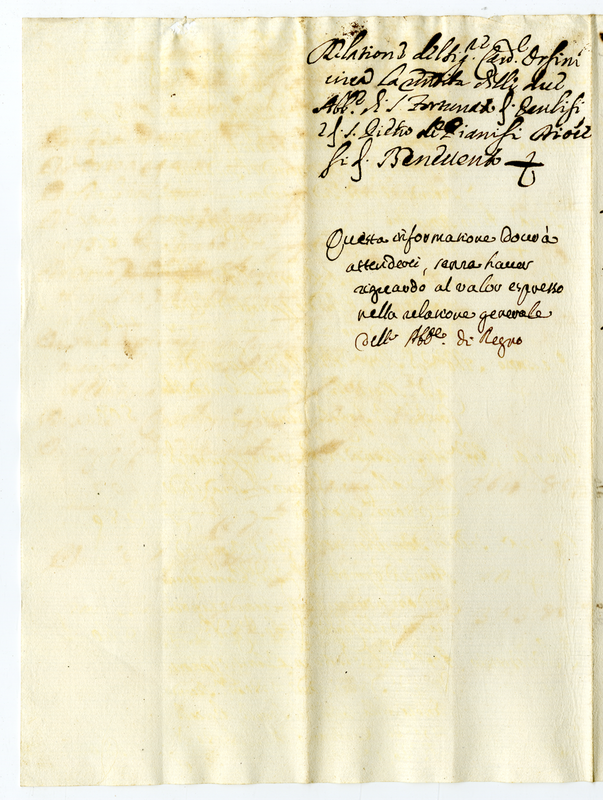 Relatione del Sig.r Card.l Orsini
circa la rendita delle due
Abb.e di S. Fortunat
e S. Pietro di Pianisi
Benevento
Questa informatione dovrà
attendersi, senza haver
riguardo al valor espresso
nella relatione generale
delle Abb.e di Regno